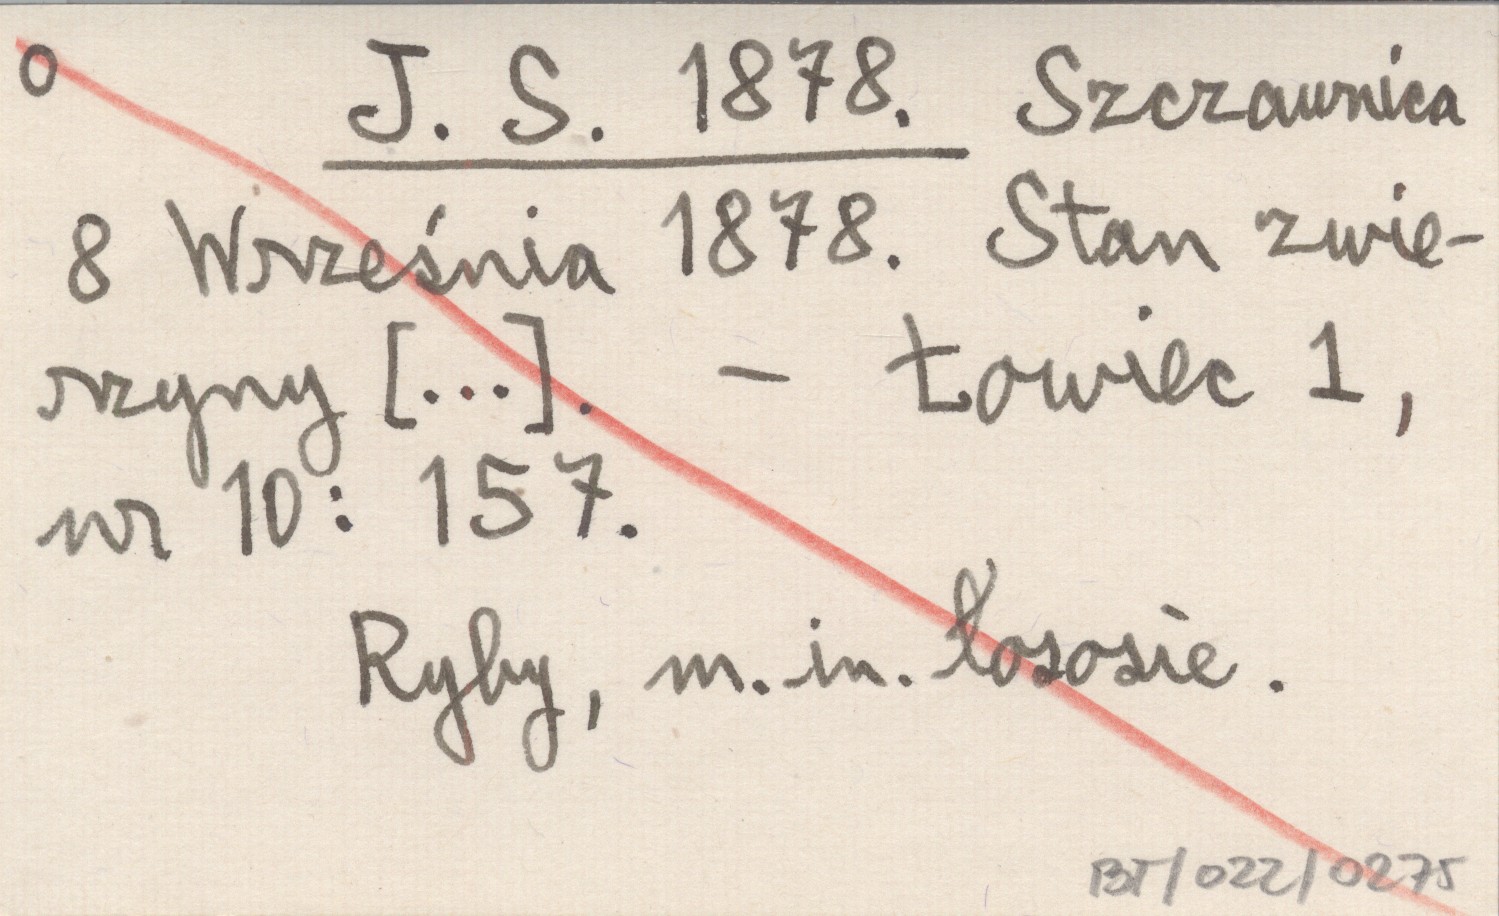 o J. S. 1878. Szczawnica
8 Września 1878. Stan zwie-
rzyny [...]. - Łowiec 1,
nr 10: 157.
Ryby, m.in. łososie.
BT/022/0275